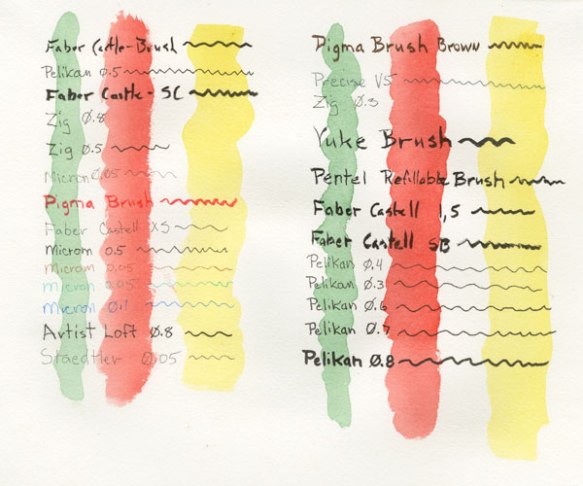 Faber Castle-Brush
Pelikan 0.5
Faber Castle - SC
Zig 0.8
Zig 0.5
Micron 0.05
Pigma Brush
Faber Castell XS
Microm 0.5
Microm 0.05
micron 0.05
Micron 0.1
Artist Loft 0.8
Staedtler 0.05
Pigma Brush Brown
Precise V5
Zig 0.3
Yuke Brush
Pentel Refillable Brush
Faber Castell 1,5
Faber Castell SB
Pelikan 0.4
Pelikan 0.3
Pelikan 0.6
Pelikan 0.7
Pelikan 0.8